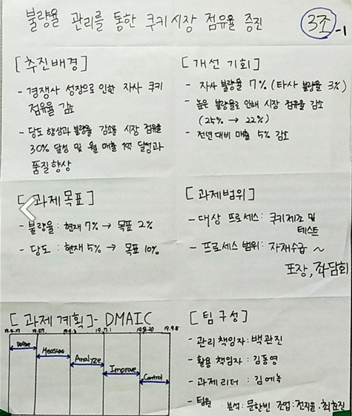 불량율 관리를 통한 쿠키시장 점유율 증진
3조-1
[추진배경]
- 경쟁사 성장으로 인한 자사 쿠키
점유율 감소
- 당도 향상과 불량율 감소를 시장 점유율
30% 달성 및 월 매출 1억 달성과
품질향상
[개선 기회]
- 자사 불량율 7% (타사 불량율 3%)
- 높은 불량율로 인해 시장 점유율 감소
(25% → 22%)
- 전년 대비 매출 5% 감소
[과제목표]
- 불량율 : 현재 7% → 목표 2%
- 당도 : 현재 5% → 목표 10%
[과제범위]
- 대상 프로세스 : 쿠키제조 및
테스트
- 프로세스 범위 : 자재수급 ~
포장, 좌담회
[과제 계획] - DMAIC
Measure
Analyze
Improve
Control
[팀 구성]
- 관리 책임자 : 백관진
- 활용 책임자 : 김동영
- 과제 리더 : 김예슬
- 팀원